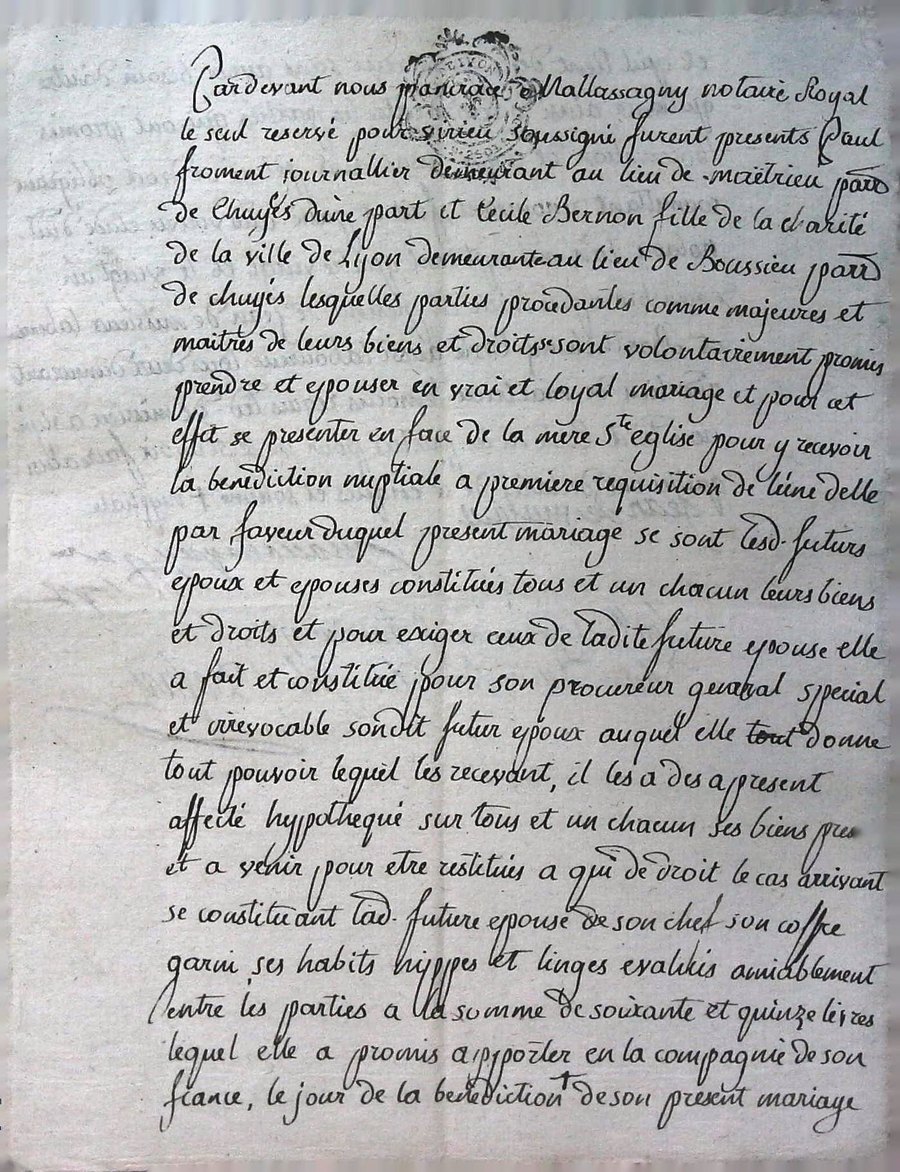 Pardevant nous pancrace Mallassagny notaire Royal
le seul reservé pour virieu soussigné furent presents Paul
froment journallier demeurant au lieu de maëtrieu parr
de Chuyés dune part et Cécile Bernon fille de la charité
de la ville de Lyon demeurante au lieu de Boussieu parr
de chuyés lesquelles parties procedantes comme majeures et
maitres de leurs biens et droits se sont volontairement promis
prendre et epouser en vrai et loyal mariage et pour cet
effet se presenter en face de la mere Ste eglise pour y recevoir
la benediction nuptiale a premiere requisition de lune delle
par faveur duquel present mariage se sont lesd. futurs
epoux et epouses constitués tous et un chacun leurs biens
et droits et pour exiger ceux de ladite future epouse elle
a fait et constitué pour son procureur general special
et irrevocable sondit futur epoux auquel elle tout donne
tout pouvoir lequel les recevant, il les a des apresent
affecté hypothequé sur tous et un chacun ses biens pres
et a venir pour etre restitués a qui de droit le cas arrivant
se constituant lad. future epouse de son chef son coffre
garni ses habits nippes et linges evalués amiablement
entre les parties a la somme de soixante et quinze livres
lequel elle a promis apporter en la compagnie de son
fiance, le jour de la benediction de son present mariage